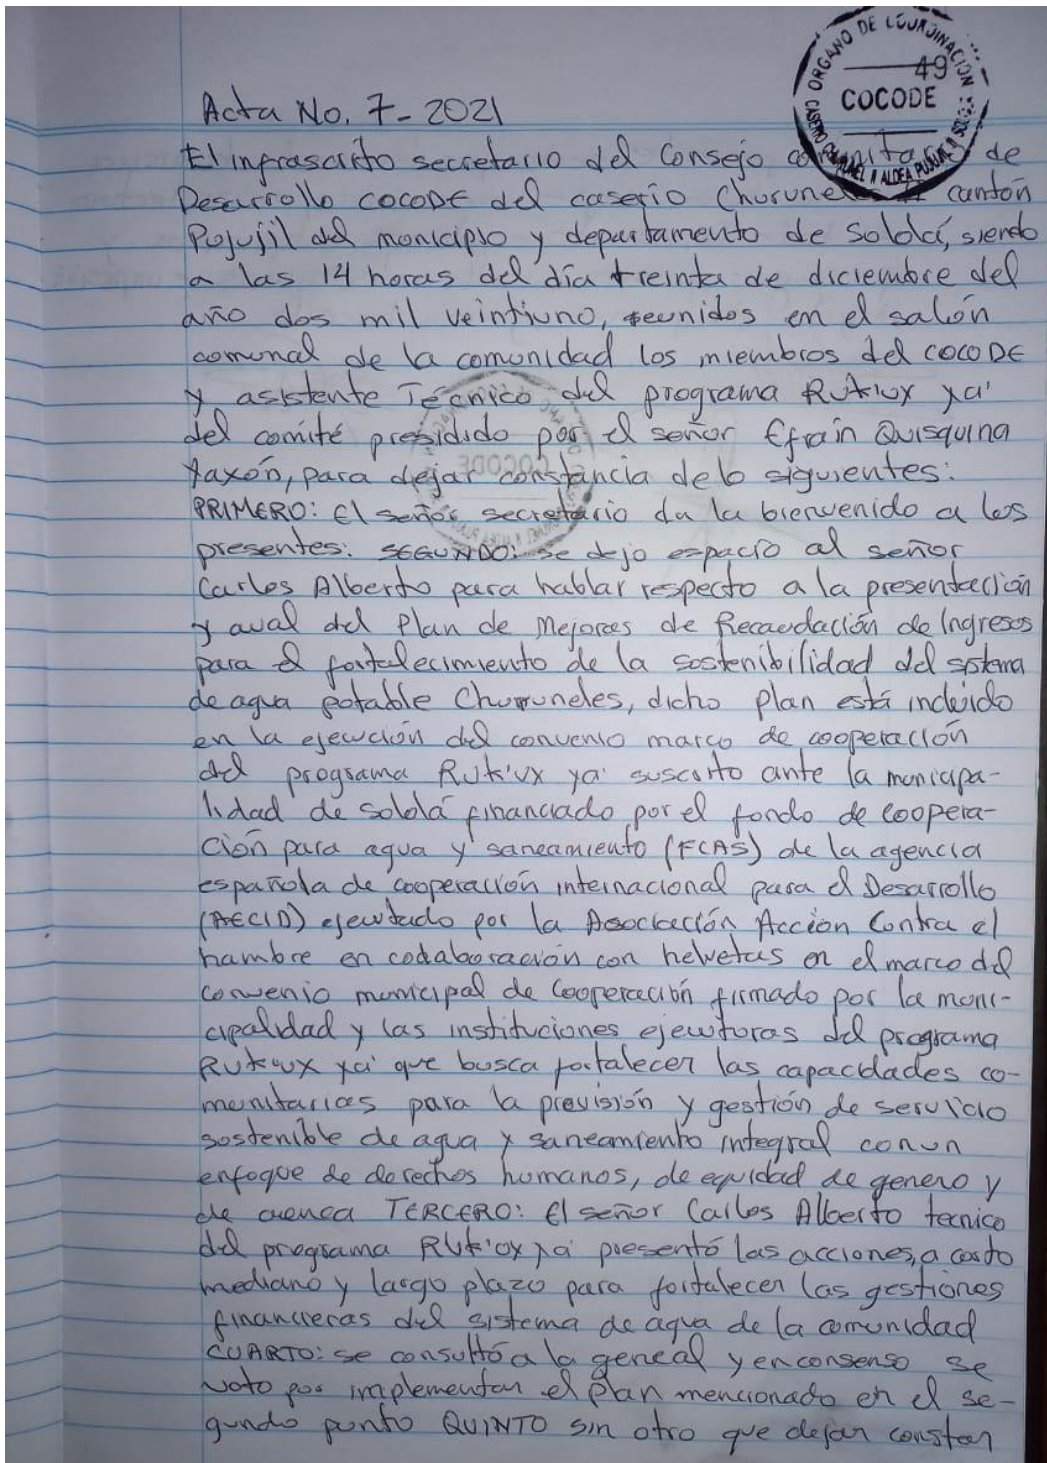 ORGANO DE COORDINACION
49
COCODE
CASERIO CHURUNEL II ALDEA PUJUJIL II SOLOLÁ
Acta No. 7-2021
El infrascrito secretario del Consejo comunitario de
Desarrollo COCODE del caserío Churunel II cantón
Pujujil del municipio y departamento de Sololá, siendo
a las 14 horas del día treinta de diciembre del
año dos mil veintiuno, reunidos en el salón
comunal de la comunidad los miembros del COCODE
y asistente Técnico del programa Rukiux ya'
del comité presidido por el señor Efraín Quisquina
taxón, para dejar constancia de lo siguientes:
PRIMERO: El señor secretario da la bienvenido a los
presentes: SEGUNDO: se dejo espacio al señor
Carlos Alberto para hablar respecto a la presentación
y aval del Plan de Mejores de Recaudación de Ingresos
para el fortalecimiento de la sostenibilidad del sistema
de agua potable Churuneles, dicho plan está incluido
en la ejecución del convenio marco de cooperación
del programa Ruk'ux ya' suscrito ante la municipa-
lidad de sololá financiado por el fondo de coopera-
ción para agua y saneamiento (FCAS) de la agencia
española de cooperación internacional para el Desarrollo
(AECID) ejecutado por la Asociación Acción Contra el
hambre en codaboración con helvetas en el marco del
convenio municipal de Cooperación firmado por la muni-
cipalidad y las instituciones ejecutoras del programa
Rukiux ya' que busca fortalecer las capacidades co-
munitarias para la previsión y gestión de servicio
sostenible de agua y saneamiento integral con un
enfoque de derechos humanos, de equidad de genero y
de cuenca TERCERO: El señor Carlos Alberto tecnico
del programa Ruk'ox ya' presentó las acciones, a corto
mediano y largo plazo para fortalecer las gestiones
financieras del sistema de agua de la comunidad
CUARTO: se consultó a la geneal y en consenso se
voto por implementar el plan mencionado en el se-
gundo punto QUINTO sin otro que dejar constar